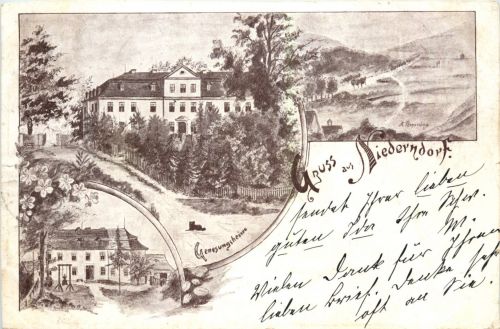 Gruss aus Niederndorf.
Genesungsheim
sendet Ihrer lieben
guten Ida Ihre Schw.
M.
Vielen Dank für Ihren
lieben Brief. Denke sehr
oft an Sie.